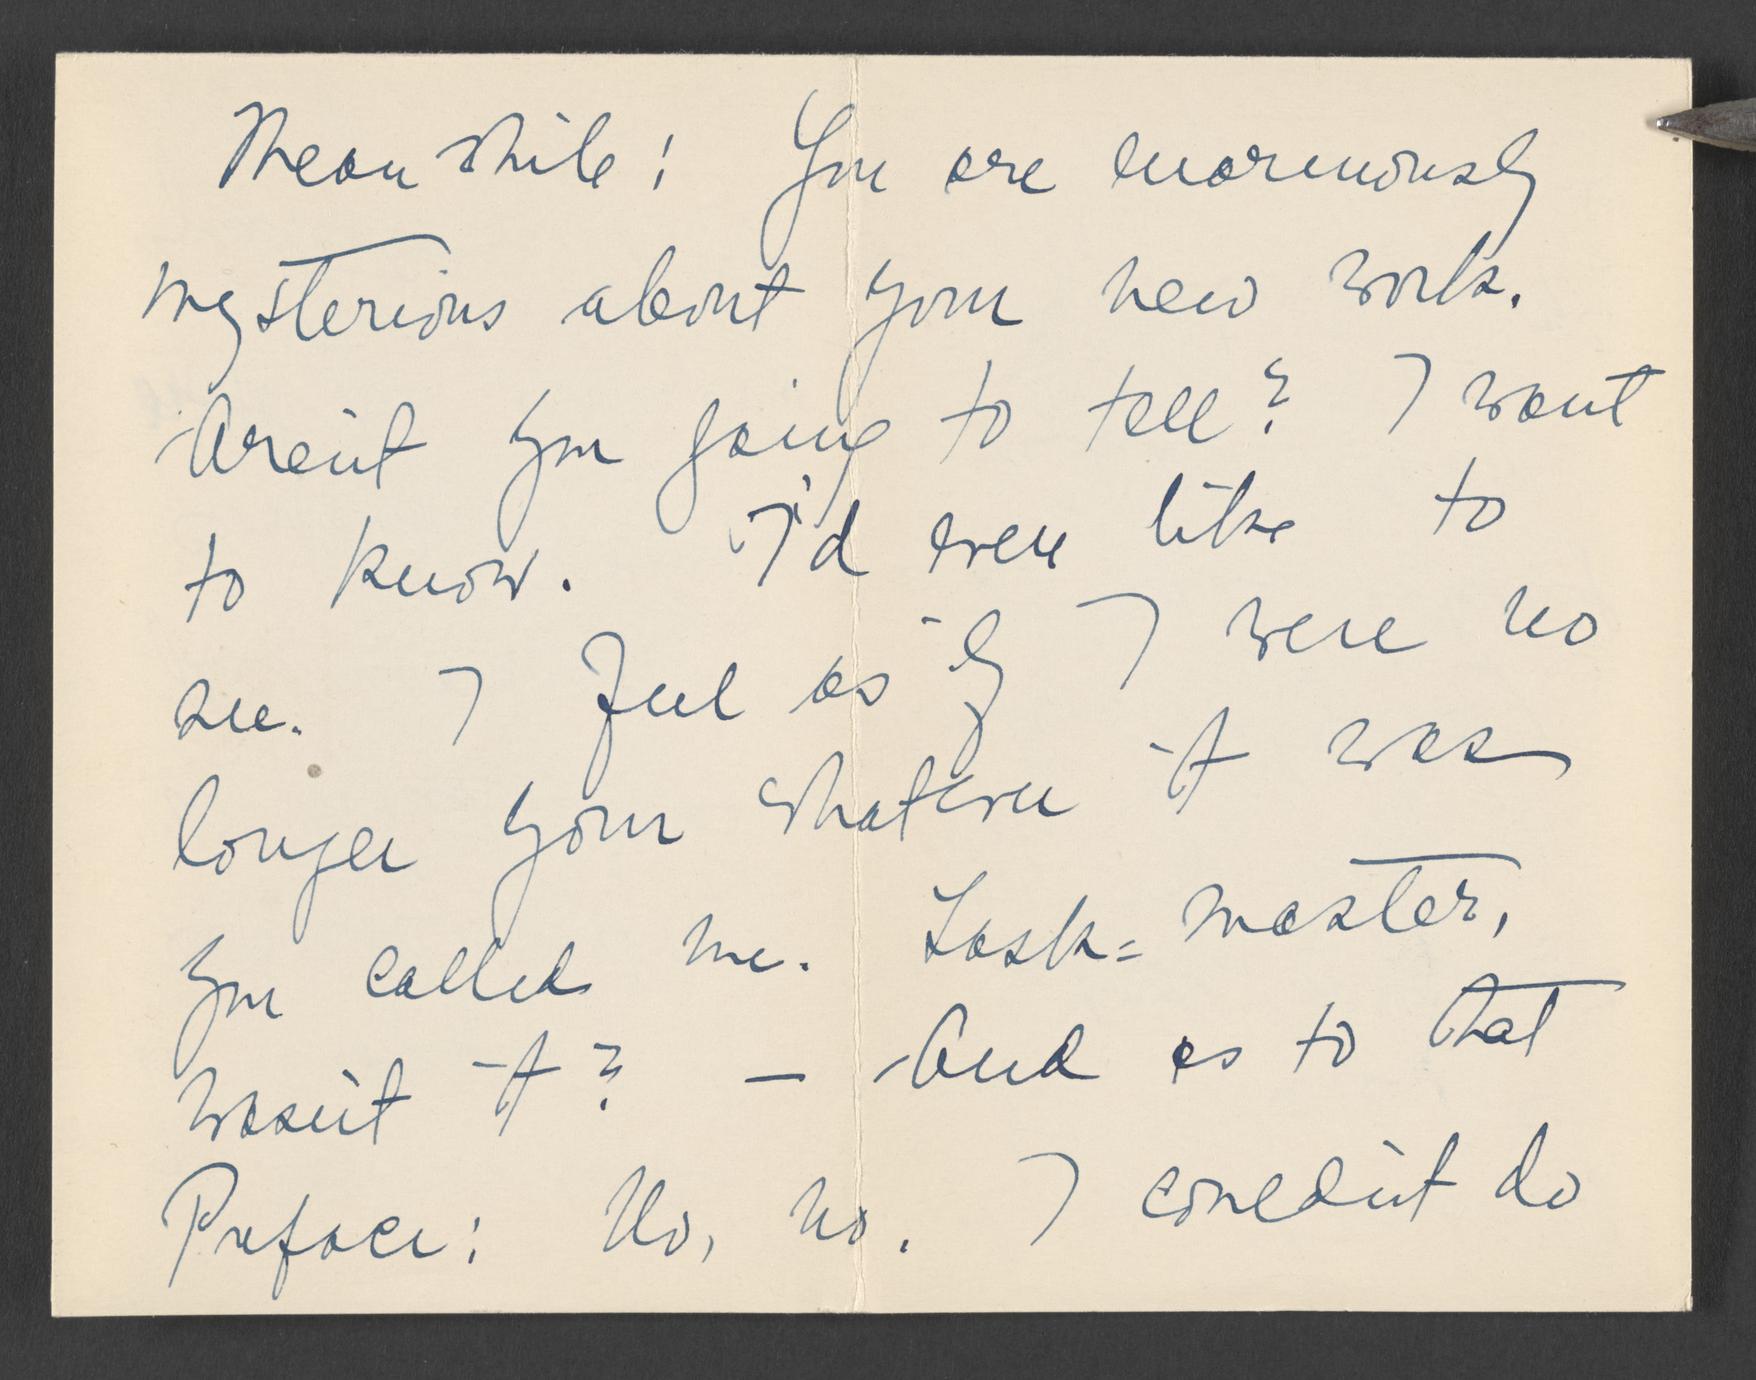 Meanwhile: You are enormously
mysterious about your new work.
Aren't you going to tell? I want
to know. I'd even like to
see. I feel as if I were no
longer your whatever it was
you called me. Task-master,
wasn't it? — And as to that
Preface: No, no. I couldn't do